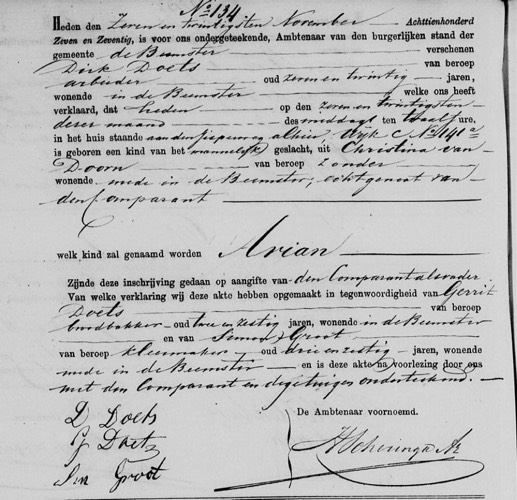 No 134
Heden den Zeven en twintigsten November Achttienhonderd
Zeven en Zeventig, is voor ons ondergeteekende, Ambtenaar van den burgerlijken stand der
gemeente de Beemster verschenen
Dirk Doets van beroep
arbeider oud zeven en twintig jaren,
wonende in de Beemster welke ons heeft
verklaard, dat heden op den zeven en twintigsten
dezer maand des middags ten twaalf ure,
in het huis staande aan den alhier Wijk C No 141a
is geboren een kind van het mannelijk geslacht, uit Christina van
Doorn van beroep zonder
wonende mede in de Beemster, echtgenoot van
den Comparant
welk kind zal genaamd worden Arian
Zijnde deze inschrijving gedaan op aangifte van den Comparant als vader
Van welke verklaring wij deze akte hebben opgemaakt in tegenwoordigheid van Gerrit
Doets van beroep
broodbakker oud twee en zestig jaren, wonende in de Beemster
en van Simon Groot
van beroep kleermaker oud drie en zestig jaren, wonende
mede in de Beemster en is deze akte na voorlezing door ons
met den Comparant en de getuigen onderteekend.
De Ambtenaar voornoemd.
D Doets
G Doets
Sn Groot
HScheringa Az